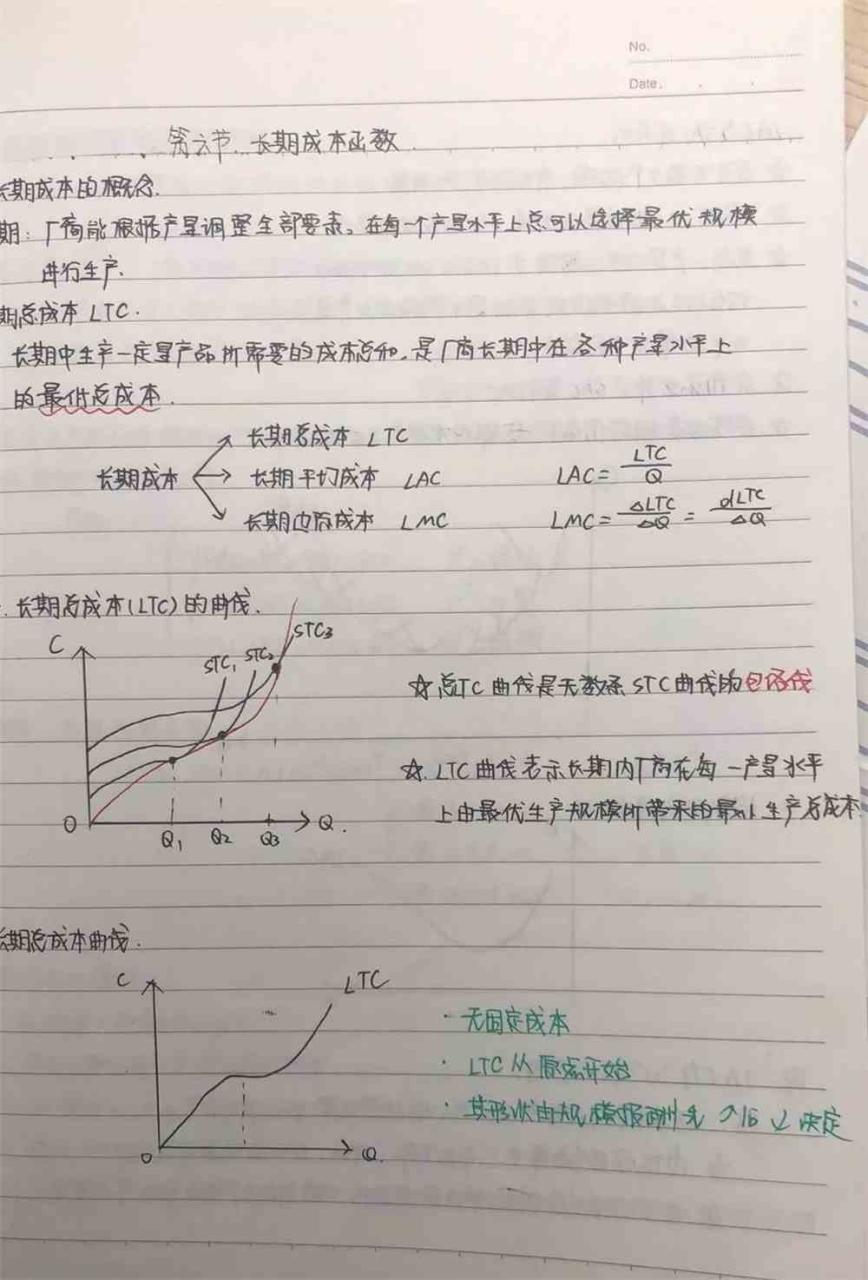 No.
Date.
第六节 长期成本函数
长期成本的概念.
期: 厂商能根据产量调整全部要素。在每一个产量水平上总可以选择最优规模
进行生产.
期总成本 LTC.
长期中生产一定量产品所需要的成本总和,是厂商长期中在各种产量水平上
的最低总成本.
长期总成本 LTC
长期成本 长期平均成本 LAC LAC = LTC/Q
长期边际成本 LMC LMC = ΔLTC/ΔQ = dLTC/ΔQ
长期总成本(LTC)的曲线.
C STC1 STC2 STC3
☆ 总TC 曲线是无数条 STC 曲线的包络线
☆. LTC 曲线表示长期内厂商在每一产量水平
上由最优生产规模所带来的最小生产总成本
O Q1 Q2 Q3 Q.
长期总成本曲线.
C LTC
· 无固定成本
· LTC 从原点开始
· 其形状由规模报酬先↗后↙决定
O Q